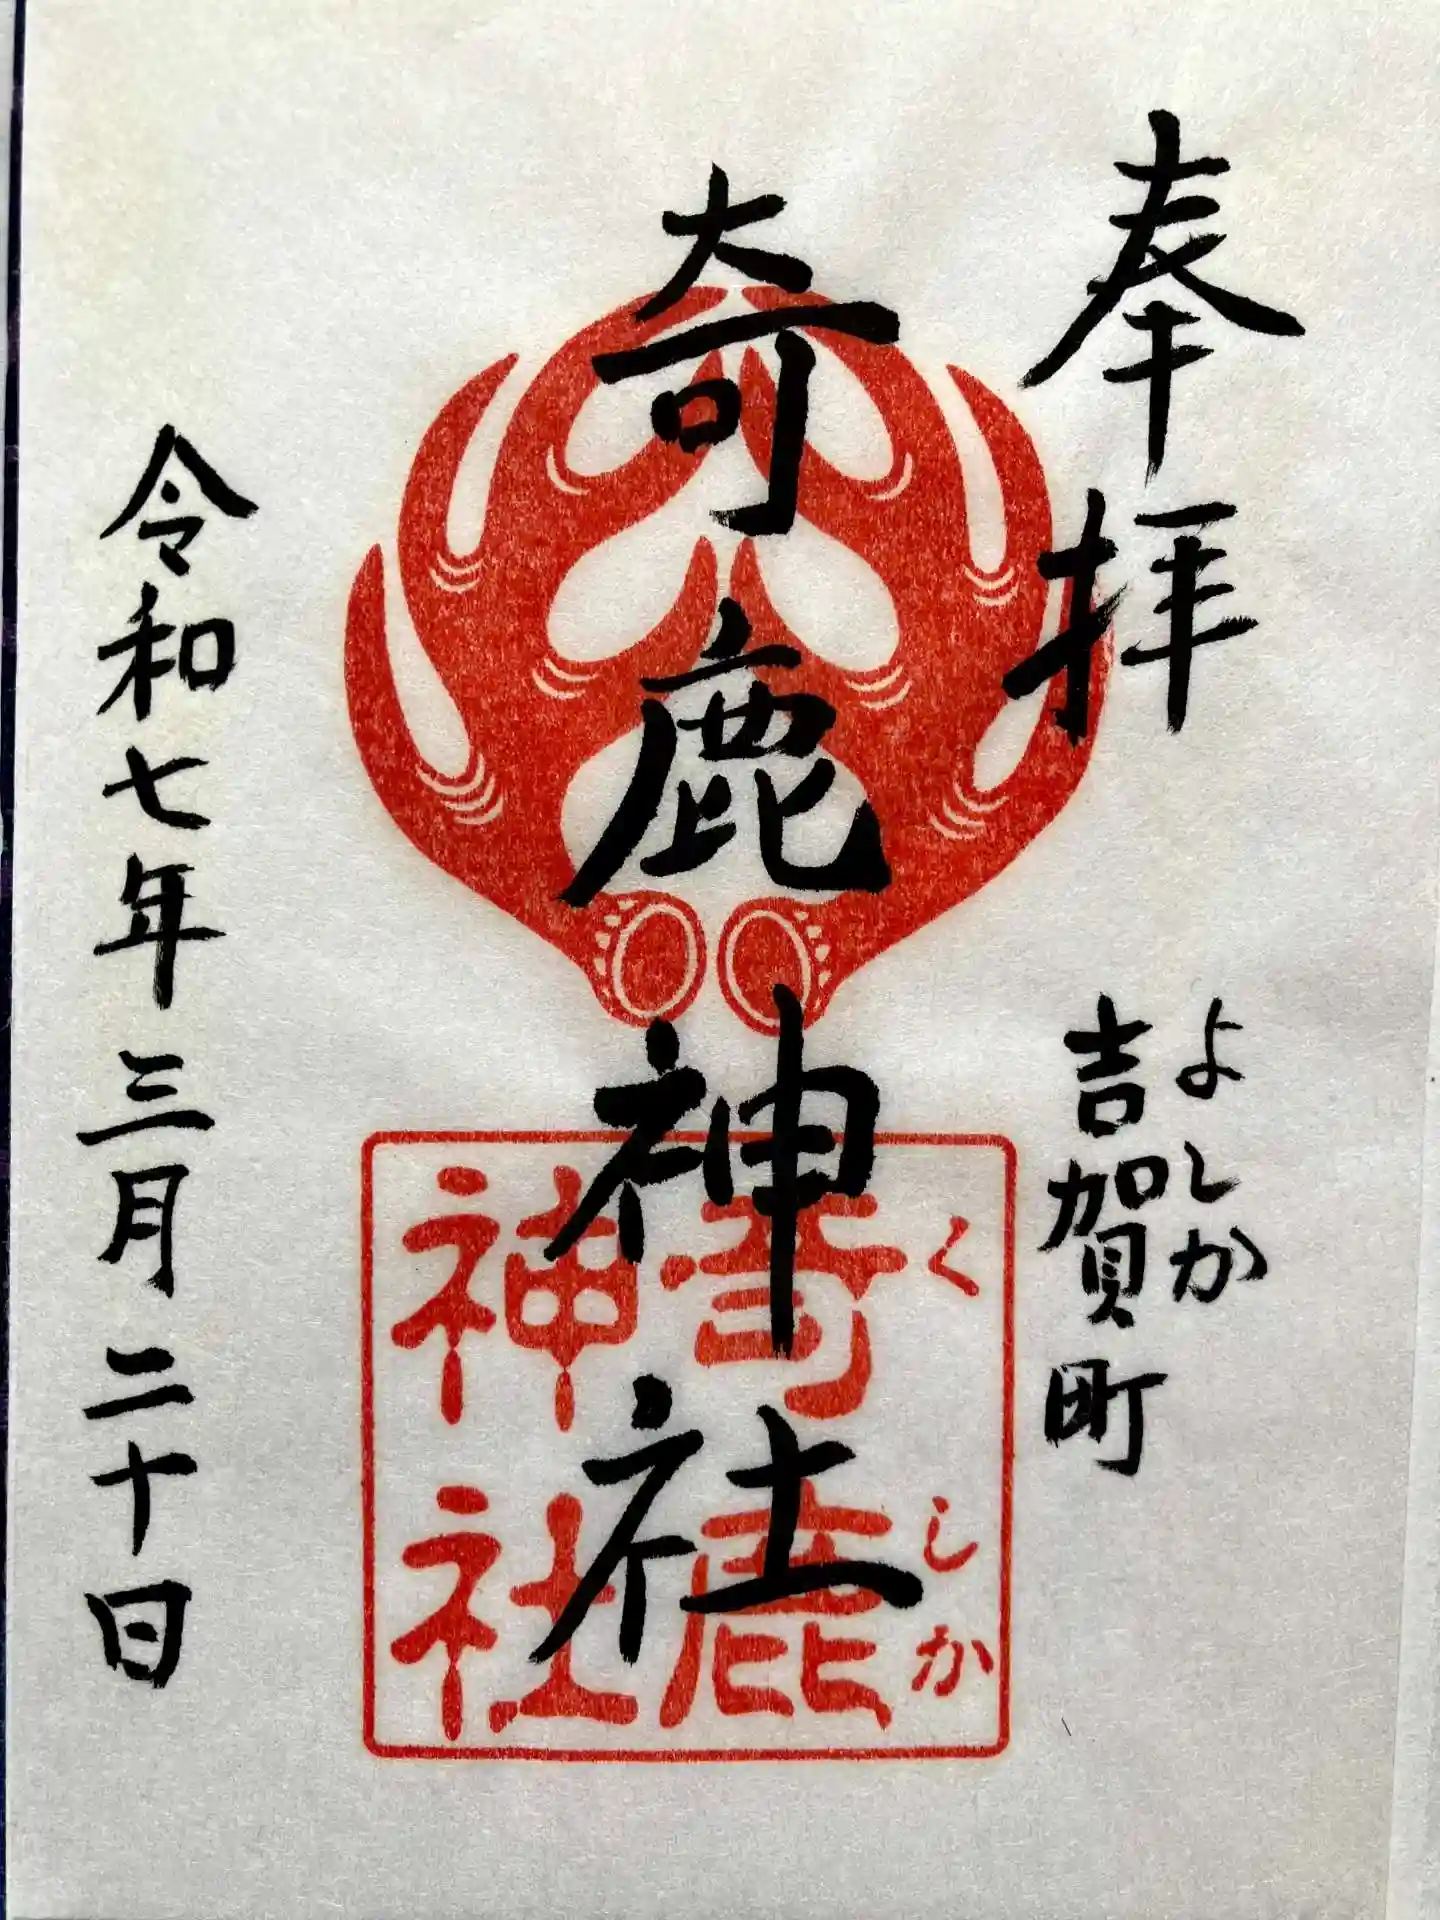 奉拝
よしか
吉賀町
奇鹿神社
くしか
奇鹿
神社
令和七年三月二十日